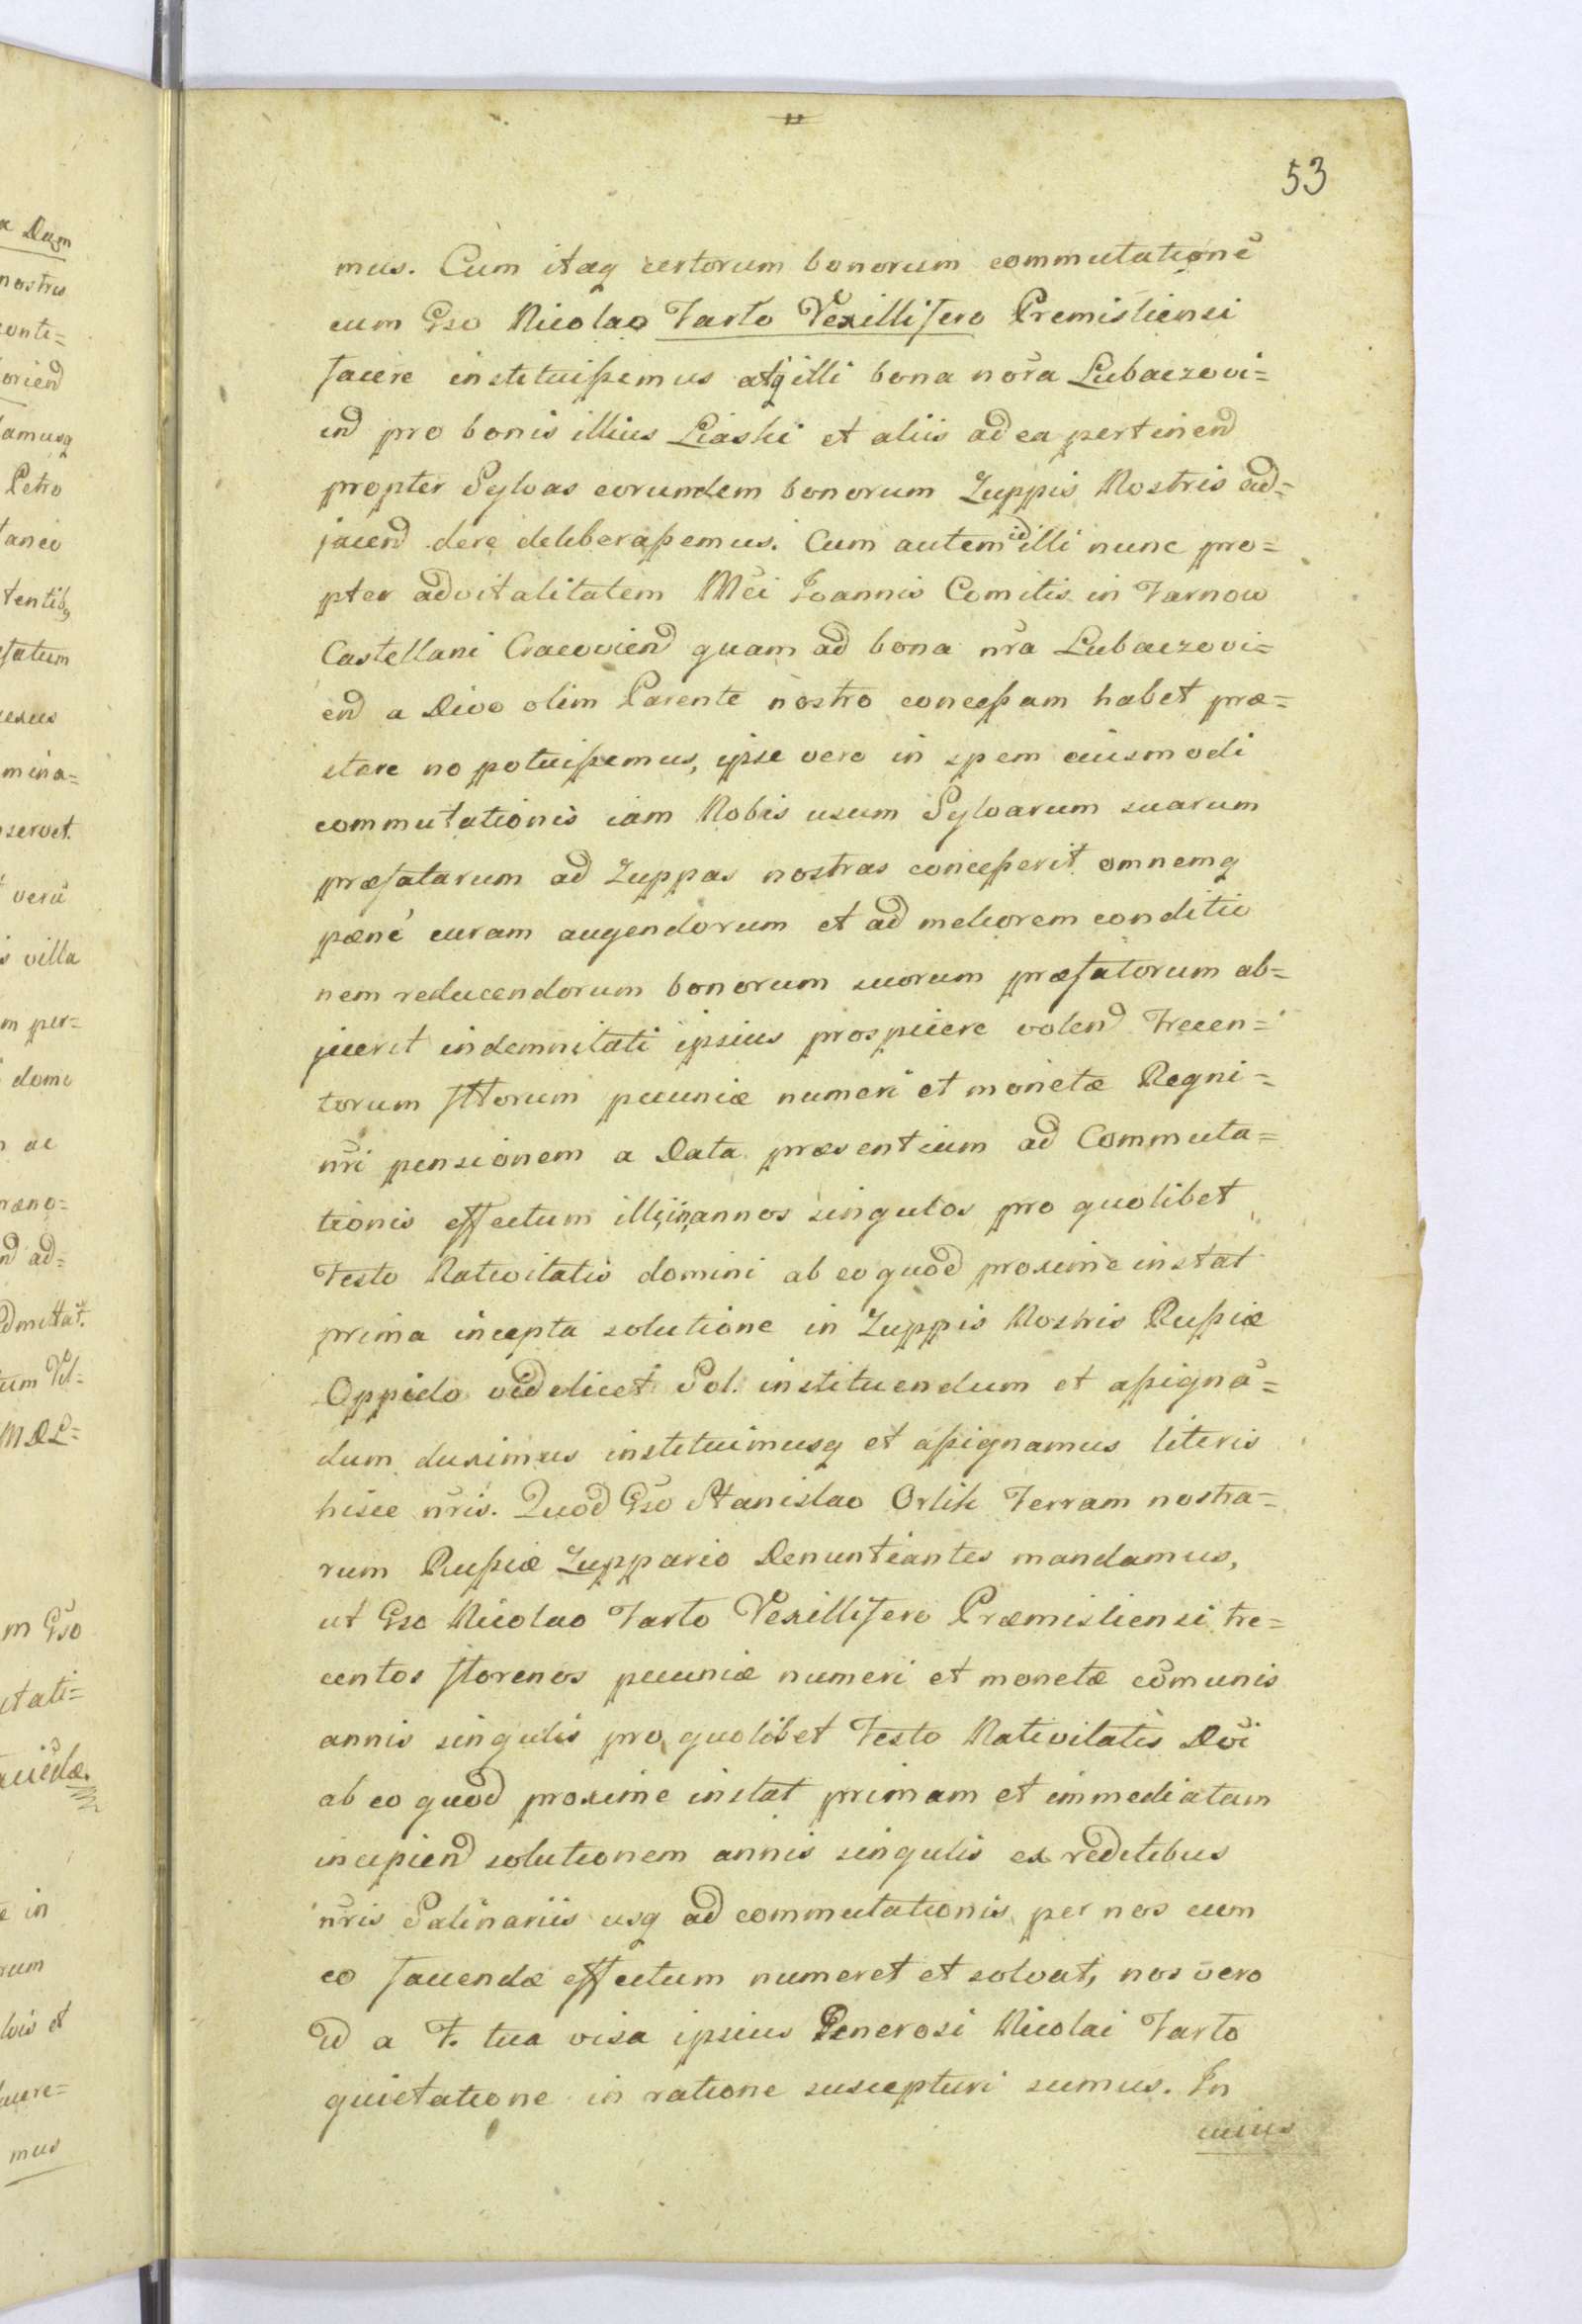 53
mus. Cum itaq certorum bonorum commutationē
cum Gso Nicolao Tarlo Vexillifero Premisliensi
facere instituissemus atq illi bona nōra Lubaczovi=
end pro bonis illius Liaski et aliis ad ea pertinend
propter Sylvas eorundem bonorum Zuppis Nostris ad=
jacend dere deliberassemus. Cum autem id illi nunc pro=
pter advitalitatem Mci Joannis Comitis in Tarnow
Castellani Cracoviend quam ad bona nra Lubaczovi=
end a Divo olim Parente nostro concessam habet præ=
stare no potuissemus, ipse vero in spem eiusmodi
commutationis iam Nobis usum Sylvarum suarum
præfatarum ad Zuppas nostras concesserit omnemq
pœne curam augendorum et ad meliorem conditio
nem reducendorum bonorum suorum præfatorum ab=
jicerit indemnitati ipsius prospicere volend Trecen=
torum flłorum pecuniæ numeri et monetæ Regni=
nri pensionem a Data præsentium ad Commuta=
tionis effectum illi, in, annos singulos pro quolibet
Festo Nativitatis domini ab eo quod proxime instat
prima incepta solutione in Zuppis Nostris Russiæ
Oppido videlicet Sol. instituendum et assignā=
dum duximus instituimusq et assignamus literis
hisce nris. Quod Gso Stanislao Orlik Terram nostra=
rum Russiæ Zuppario Denuntiantes mandamus,
ut Gso Nicolao Tarlo Vexillifero Præmisliensi tre=
centos florenos pecuniæ numeri et monetæ cōmunis
annis singulis pro quolibet Festo Nativitatis Dni
ab eo quod proxime instat primam et immediatam
incipiend solutionem annis singulis ex reditibus
nris Salinariis usq ad commutationis per nos cum
eo faciendæ effectum numeret et solvat, nos vero
id a F. tua visa ipsius Generosi Nicolai Tarlo
quietatione in ratione suscepturi sumus. In
cuius